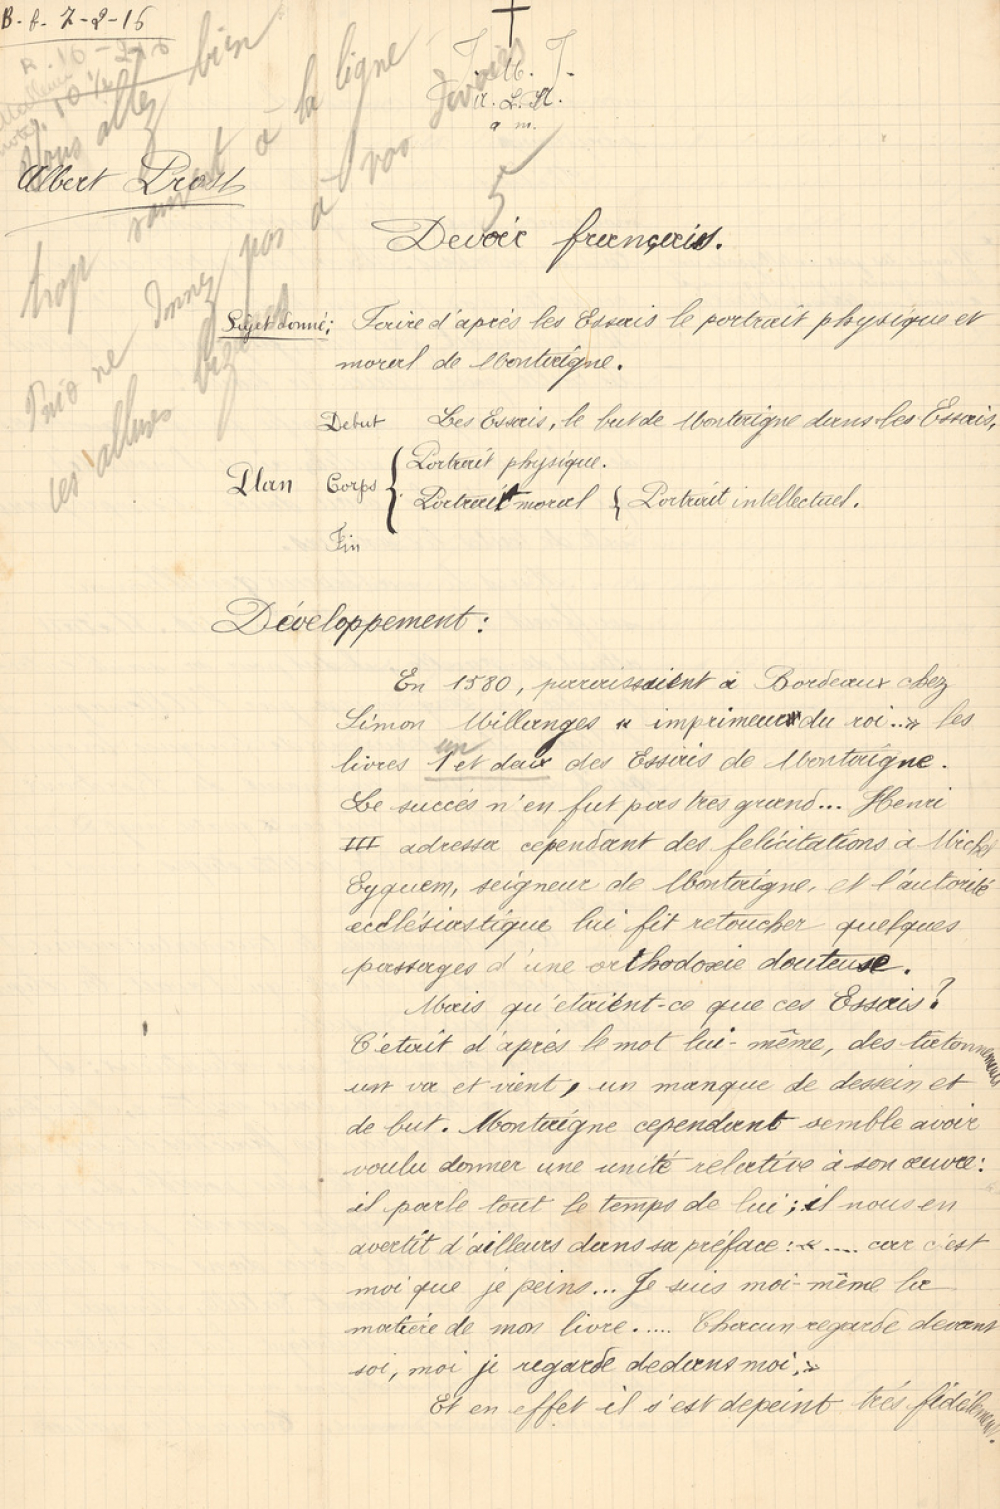 B. f. 7-2-16
R. 16-2-16
10 1/2
Vous allez bien
trop souvent à la ligne
Puis ne donnez pas à vos devoirs
ces allures
J. M. J.
a. m.
5
Albert Prost
Devoir français.
Sujet donné; Faire d'après les Essais le portrait physique et
moral de Montaigne.
Début Les Essais, le but de Montaigne dans les Essais,
Plan Corps { Portrait physique.
Portrait moral { Portrait intellectuel.
Fin
Développement :
En 1580, paraissaient à Bordeaux chez
Simon Millanges « imprimeur du roi..» les
un
livres 1 et deux des Essais de Montaigne.
Le succès n'en fut pas très grand... Henri
III adressa cependant des felicitations à Michel
Eyquem, seigneur de Montaigne, et l'autorité
ecclésiastique lui fit retoucher quelques
passages d'une orthodoxie douteuse.
Mais qu'étaient-ce que ces Essais?
C'était d'après le mot lui-même, des tatonnements
un va et vient, un manque de dessein et
de but. Montaigne cependant semble avoir
voulu donner une unité relative à son œuvre:
il parle tout le temps de lui; il nous en
avertit d'ailleurs dans sa préface: «.... car c'est
moi que je peins... Je suis moi-même la
matière de mon livre..... Chacun regarde devant
soi, moi je regarde dedans moi.»
Et en effet il s'est depeint très fidèlement.